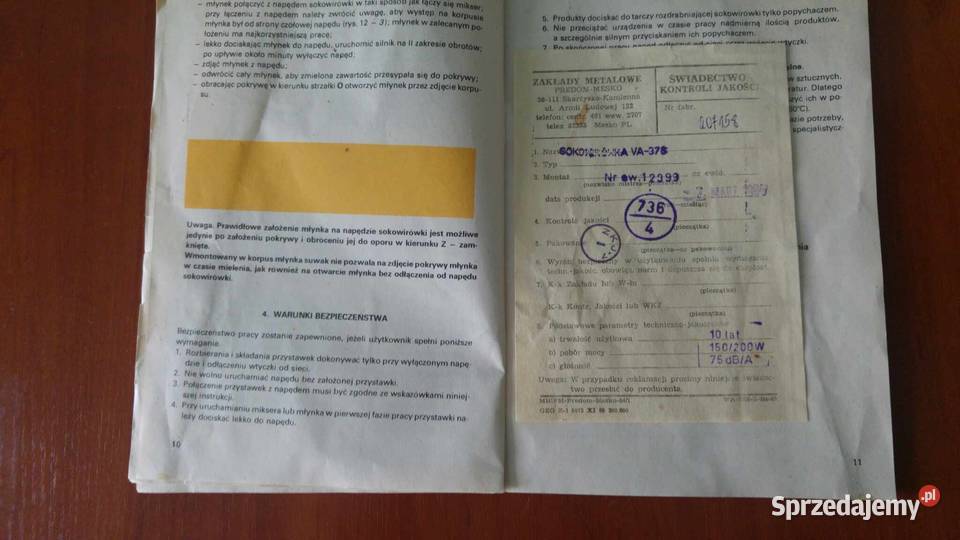 – młynek połączyć z napędem sokowirówki w taki sposób jak łączy się mikser;
przy łączeniu z napędem należy zwrócić uwagę, aby występ na korpusie
młynka był od strony czołowej napędu (rys. 12 – 3); młynek w zalecanym po-
łożeniu ma najkorzystniejszą pracę;
– lekko dociskając młynek do napędu, uruchomić silnik na II zakresie obrotów;
po upływie około minuty wyłączyć napęd;
– zdjąć młynek z napędu;
– odwrócić cały młynek, aby zmielona zawartość przesypała się do pokrywy;
– obracając pokrywę w kierunku strzałki O otworzyć młynek przez zdjęcie korpu-
su.
Uwaga. Prawidłowe założenie młynka na napędzie sokowirówki jest możliwe
jedynie po założeniu pokrywy i obroceniu jej do oporu w kierunku Z – zam-
knięte.
Wmontowany w korpus młynka suwak nie pozwala na zdjęcie pokrywy młynka
w czasie mielenia, jak również na otwarcie młynka bez odłączenia od napędu
sokowirówki.
4. WARUNKI BEZPIECZEŃSTWA
Bezpieczeństwo pracy zostanie zapewnione, jeżeli użytkownik spełni poniższe
wymagania.
1. Rozbierania i składania przystawek dokonywać tylko przy wyłączonym napę-
dzie i odłączeniu wtyczki od sieci.
2. Nie wolno uruchamiać napędu bez założonej przystawki.
3. Połączenie przystawek z napędem musi być zgodne ze wskazówkami niniej-
szej instrukcji.
4. Przy uruchamianiu miksera lub młynka w pierwszej fazie pracy przystawki na-
leży dociskać lekko do napędu.
10
5. Produkty dociskać do tarczy rozdrabniającej sokowirówki tylko popychaczem.
6. Nie przeciążać urządzenia w czasie pracy nadmierną ilością produktów,
a szczególnie silnym przyciskaniem ich popychaczem.
7. Po skończonej pracy napęd odłączyć od sieci wtyczki.
ZAKŁADY METALOWE
PREDOM-MESKO
26-111 Skarżysko-Kamienna
ul. Armii Ludowej 122
telefon: centr. 491 wew. 2707
telex Mesko PL
ŚWIADECTWO
KONTROLI JAKOŚCI
Nr fabr.
207158
w sztucznych,
atur. Dlatego
zyć ich w po-
0°C).
azie potrzeby,
specjalistycz-
1. Nazwa SOKOWIRÓWKA VA-376
2. Typ
3. Montaż Nr ew. 12393
data produkcji 2. MART 1989
736
4
4. Kontrola jakości
(pieczątka)
Z.K.J.
1
5. Pakowacz
(pieczątka-nr pakowacza)
6. Wyrób bezpieczny w użytkowaniu spełnia wymagania
techn.-jakośc. obowiąz. norm i dopuszcza się do eksploat.
7. K-k Zakładu lub W-łu
(pieczątka)
K-k Kontr. Jakości lub WKJ
(pieczątka)
8. Podstawowe parametry techniczno-jakościowe
a) trwałość użytkowa 10 lat
b) pobór mocy 150/200W
c) głośność 75 dB/A
Uwaga: W przypadku reklamacji prosimy niniejsze świadec-
two przesłać do producenta.
11
Sprzedajemy.pl